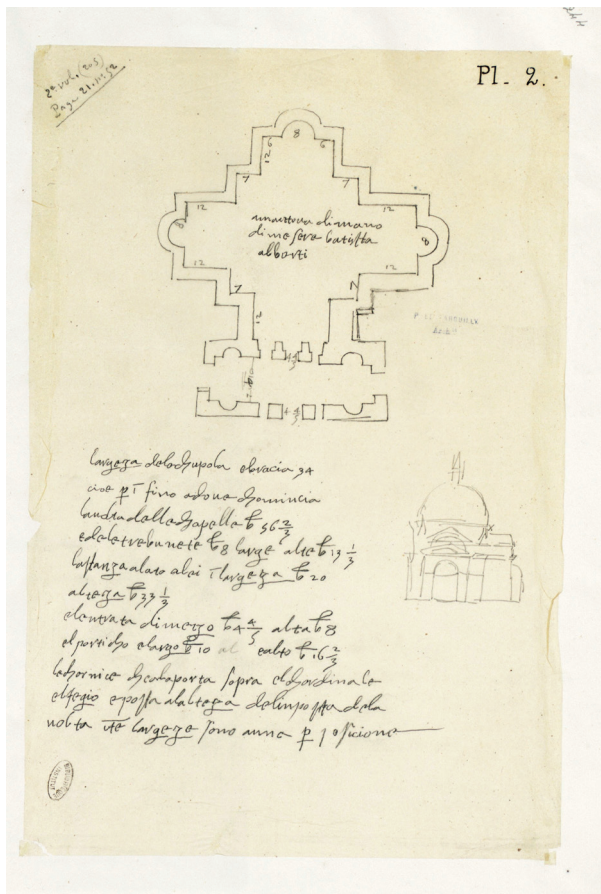 2ª vol. (205)
Paga 21. nº 52
Pl. 2.
8
6
6
12
7
7
12
12
8
8
12
12
7
7
12
4 4/5
4 4/5
di mano
di mesere batista
alberti
largeza dela chupola e bracia 34
cioe p i fino adove chomincia
delle chapelle b 56 2/3
e dele trebunete b 8 large alte b 13 1/3
la stanza alato alei i largeza b 20
alteza b 33 1/3
elentrata di mezo b 4 4/5 alta b 8
el porticho e largo b 10 al ealto b 16 2/3
le chornice dela porta sopra el chardinale
el segio e posta alalteza del inposta dela
volta ite largeze sono anne p posicione